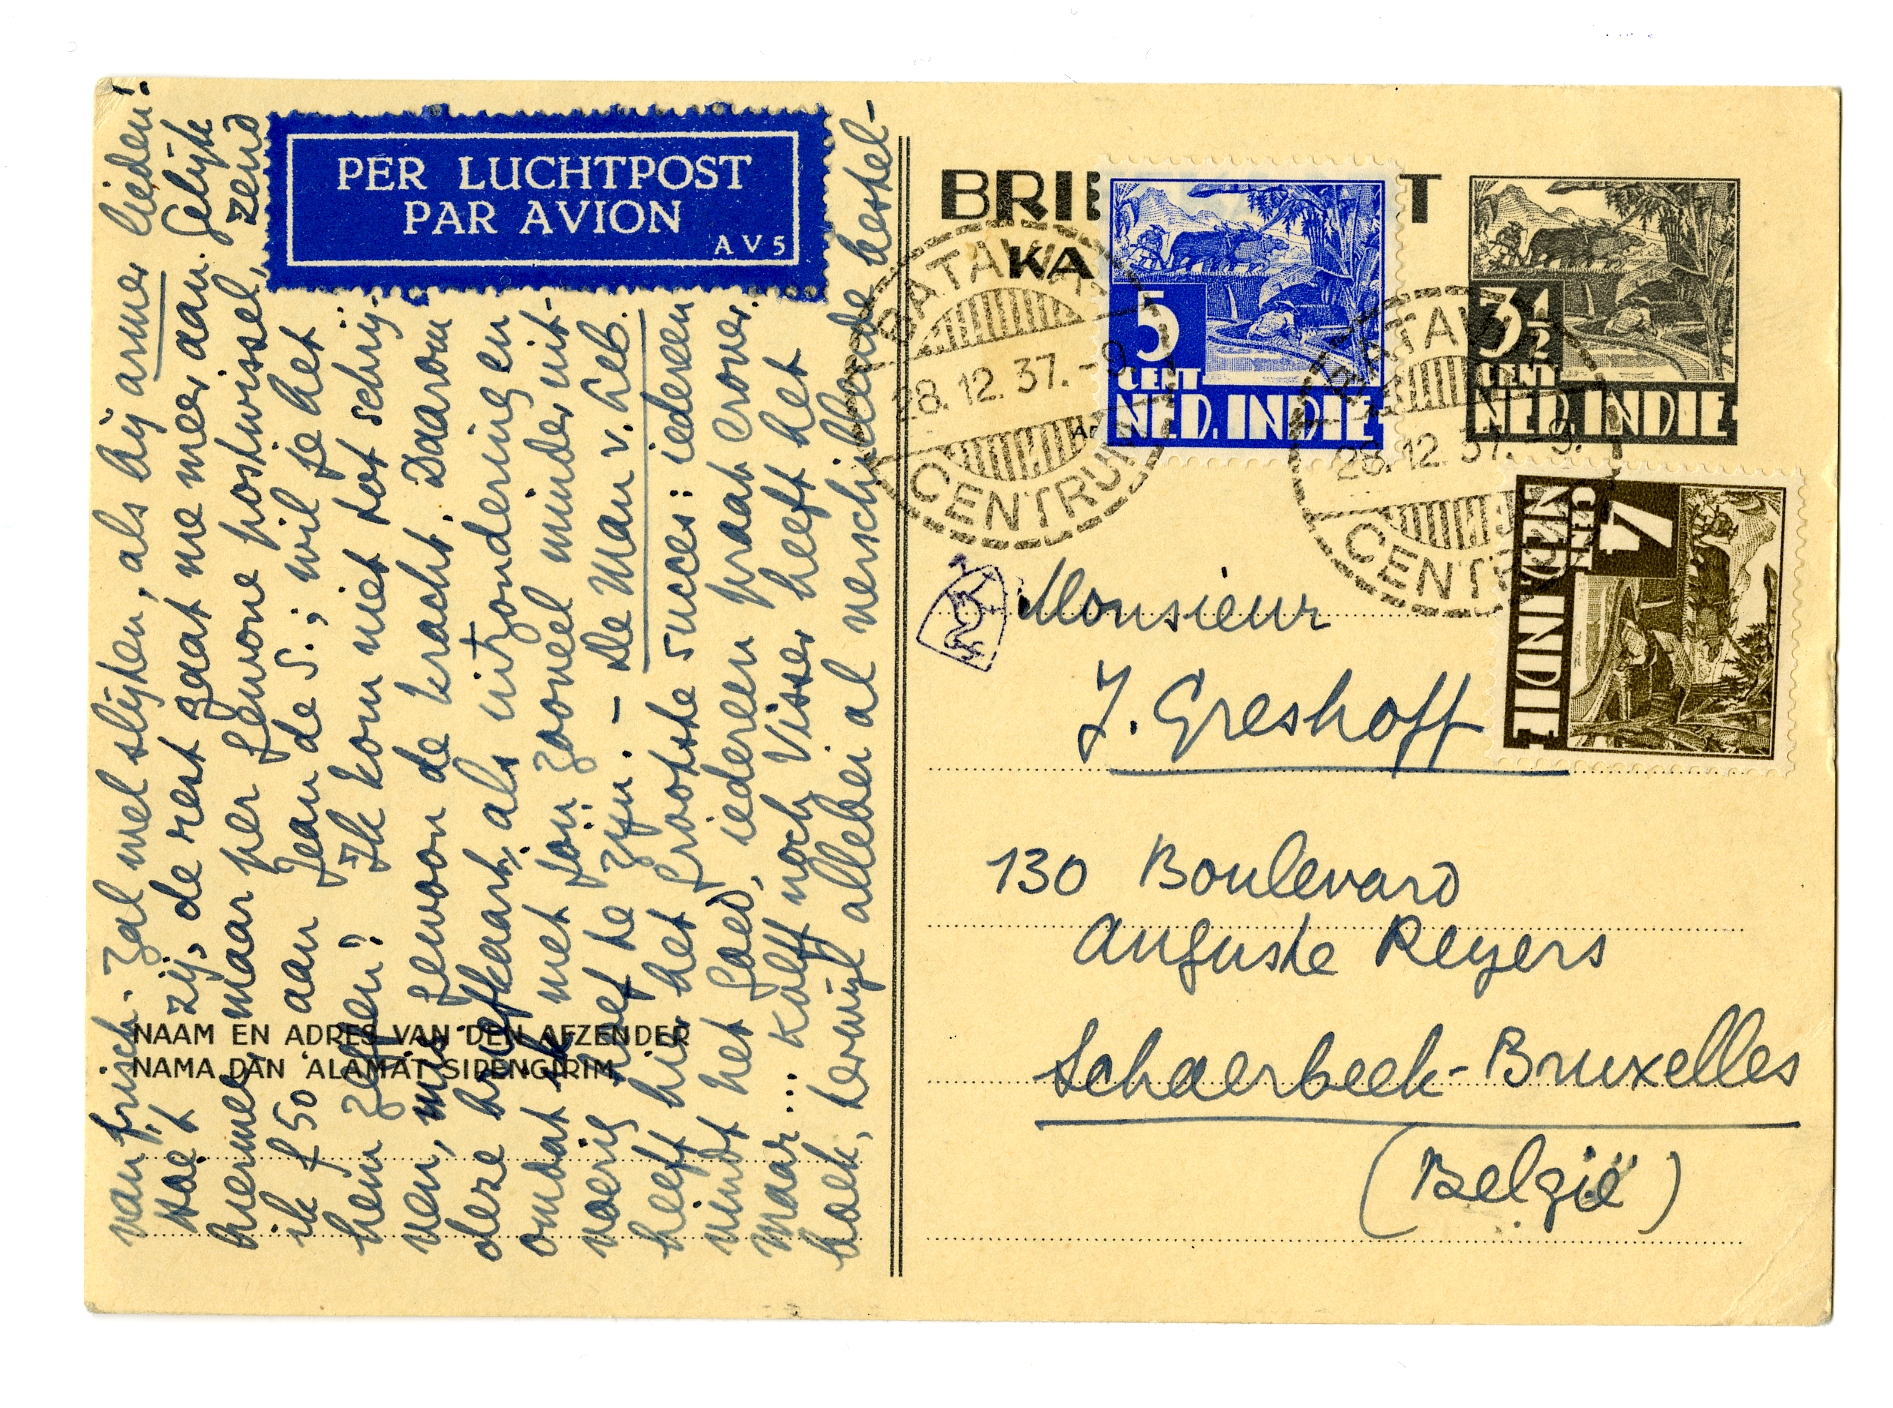 van frisch. Zal wel slijten, als bij armer lieden!
Hoe 't zij, de rest gaat me meer aan. Gelijk
hiermee maar per gewone postwissel, zend
ik f 50 aan Jean de S.; wil je het
hem zeggen? Ik kom niet tot schrij-
ven, mis gewoon de kracht. Daarom
deze briefkaart, als uitzondering en
omdat ik met jou zooveel minder uit-
voerig hoef te zijn. – De Man v. Leb.
heeft hier het grootste succes: iedereen
vindt het goed, iedereen praat erover.
Maar... Kolff noch Visser heeft het
boek, terwijl allebei al verschillende bestel-
PER LUCHTPOST
PAR AVION
AV5
NAAM EN ADRES VAN DEN AFZENDER
NAMA DAN ALAMAT SIPENGIRIM
BRIE T
KA
5
CENT
NED. INDIE
3½
CENT
NED. INDIE
4
CENT
NED. INDIE
BATAVIA
28.12.37.-9.
CENTRUM
BATAVIA
28.12.37.-9.
CENTRUM
Monsieur
J. Greshoff
130 Boulevard
Auguste Reyers
Schaerbeek-Bruxelles
(België)